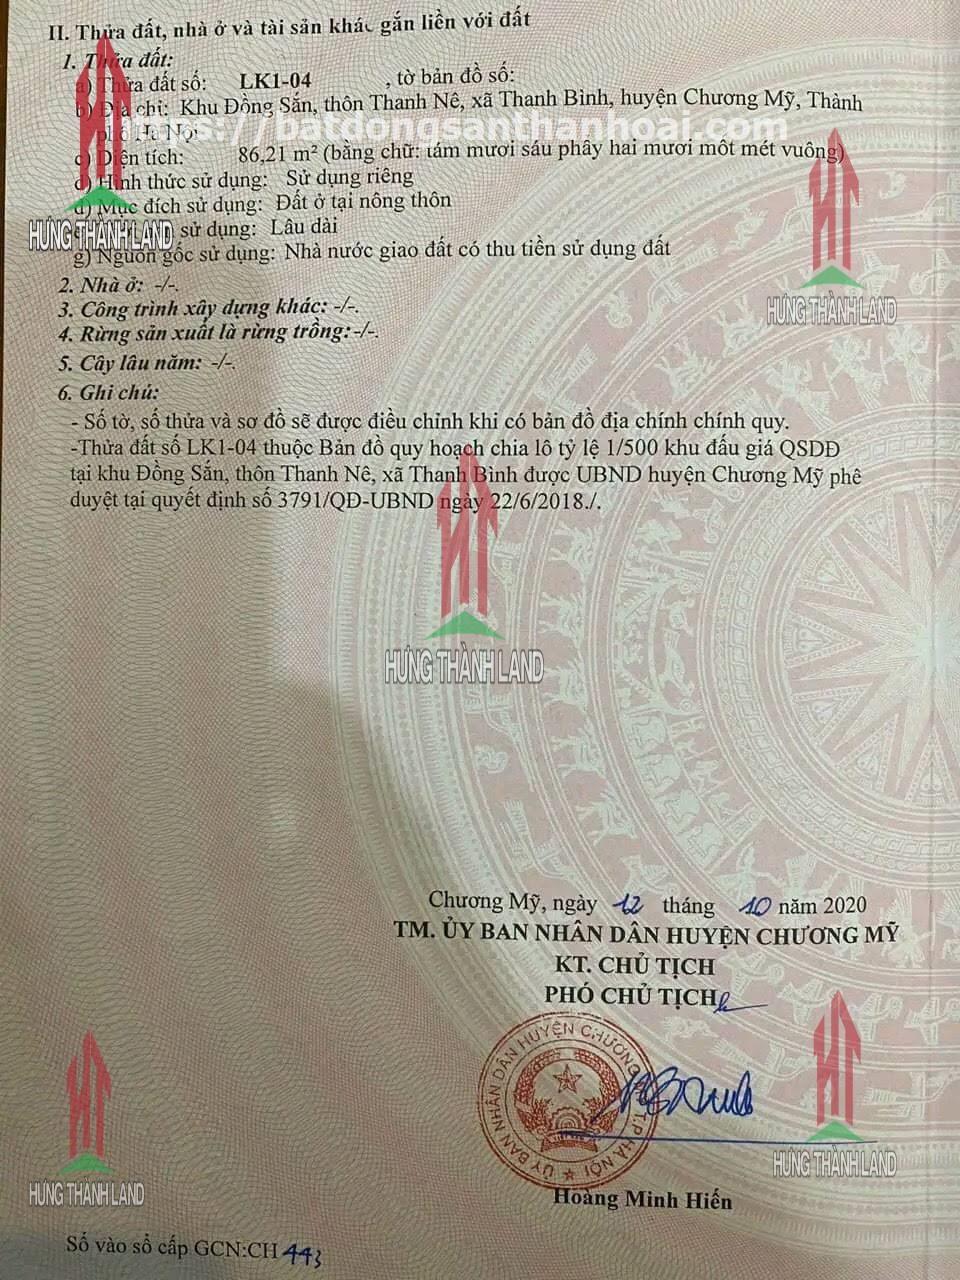 II. Thửa đất, nhà ở và tài sản khác gắn liền với đất
1. Thửa đất:
a) Thửa đất số: LK1-04 , tờ bản đồ số:
b) Địa chỉ: Khu Đồng Sắn, thôn Thanh Nê, xã Thanh Bình, huyện Chương Mỹ, Thành
phố Hà Nội
https://batdongsanthanhoai.com
c) Diện tích: 86,21 m² (bằng chữ: tám mươi sáu phẩy hai mươi mốt mét vuông)
d) Hình thức sử dụng: Sử dụng riêng
đ) Mục đích sử dụng: Đất ở tại nông thôn
sử dụng: Lâu dài
g) Nguồn gốc sử dụng: Nhà nước giao đất có thu tiền sử dụng đất
HƯNG THÀNH LAND
2. Nhà ở: -/-.
3. Công trình xây dựng khác: -/-.
HƯNG THÀNH LAND
4. Rừng sản xuất là rừng trồng:-/-.
5. Cây lâu năm: -/-.
6. Ghi chú:
- Số tờ, số thửa và sơ đồ sẽ được điều chỉnh khi có bản đồ địa chính chính quy.
-Thửa đất số LK1-04 thuộc Bản đồ quy hoạch chia lô tỷ lệ 1/500 khu đấu giá QSDĐ
tại khu Đồng Sắn, thôn Thanh Nê, xã Thanh Bình được UBND huyện Chương Mỹ phê
duyệt tại quyết định số 3791/QĐ-UBND ngày 22/6/2018./.
HƯNG THÀNH LAND
Chương Mỹ, ngày 12 tháng 10 năm 2020
TM. ỦY BAN NHÂN DÂN HUYỆN CHƯƠNG MỸ
KT. CHỦ TỊCH
PHÓ CHỦ TỊCH
ỦY BAN NHÂN DÂN HUYỆN CHƯƠNG T.P HÀ NỘI
HƯNG THÀNH LAND
HƯNG THÀNH LAND
Hoàng Minh Hiến
Số vào sổ cấp GCN:CH 443